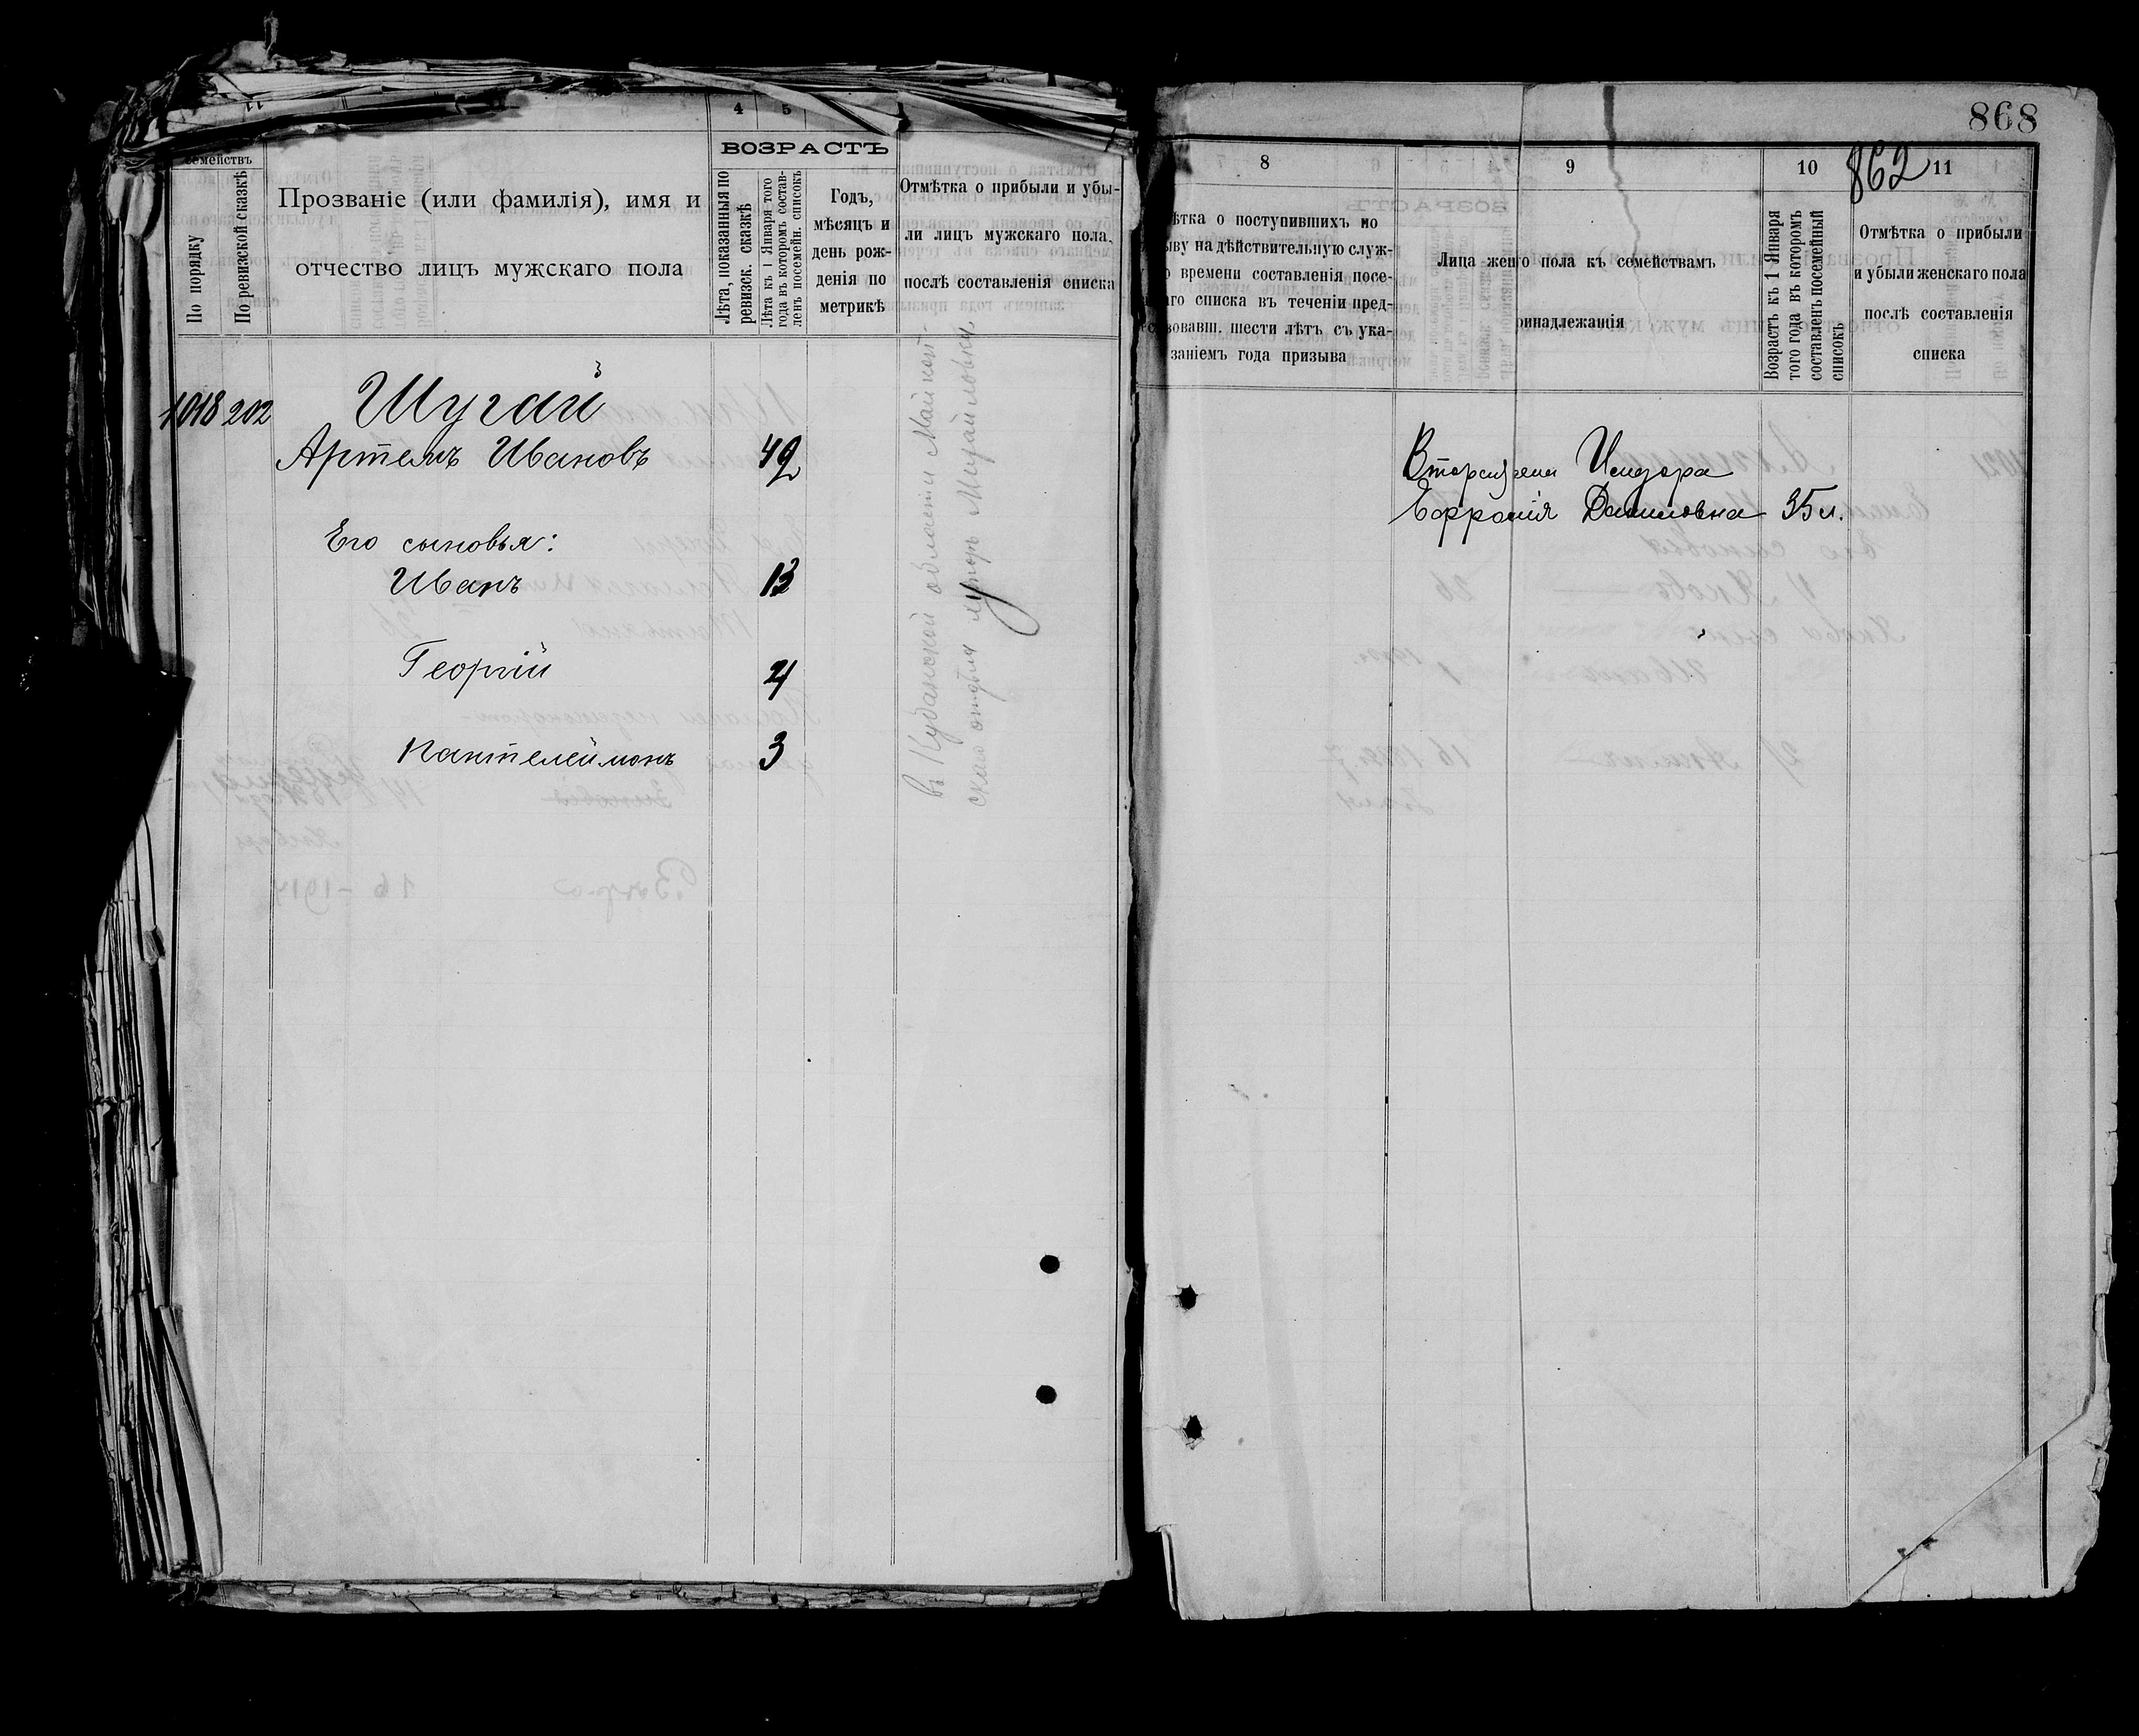 4 5
семействъ
По порядку
По ревизской сказкѣ
Прозваніе (или фамилія), имя и
отчество лицъ мужскаго пола
ВОЗРАСТЪ
Лѣта, показанныя по
ревизск. сказкѣ
Лѣта къ 1 Января того
года въ которомъ состав-
ленъ посемейн. списокъ
Годъ,
мѣсяцъ и
день рож-
денія по
метрикѣ
Отмѣтка о прибыли и убы-
ли лицъ мужскаго пола,
послѣ составленія списка
1018 202 Шугай 3
Артемъ Ивановъ 49
Его сыновья:
Иванъ 13
Георгій 4
Пантелеймонъ 3
въ Кубанской области Майкоп-
скаго отдѣла хуторъ
868
862
8 9 10 11
ѣтка о поступившихъ по
ыву на дѣйствительную служ-
о времени составленія посе-
аго списка въ теченіи пред-
вовавш. шести лѣтъ съ ука-
заніемъ года призыва
Лица женго пола къ семействамъ
ринадлежащія
Возрастъ къ 1 Января
того года въ которомъ
составленъ посемейный
списокъ
Отмѣтка о прибыли
и убыли женскаго пола
послѣ составленія
списка
жена
Даниловна 35 л.